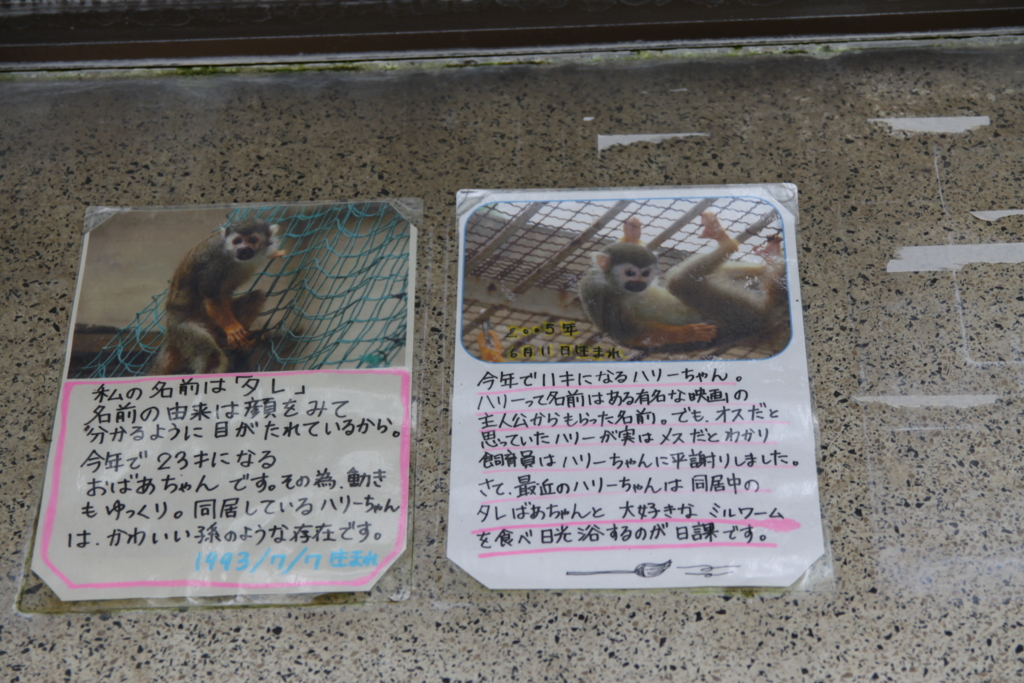 私の名前は「タレ」
名前の由来は顔をみて
分かるように目がたれているから。
今年で23才になる
おばあちゃんです。その為、動き
もゆっくり。同居しているハリーちゃん
は、かわいい孫のような存在です。
1993/7/7 生まれ
2005年
6月11日生まれ
今年で11才になるハリーちゃん。
ハリーって名前はある有名な映画の
主人公からもらった名前。でも、オスだと
思っていたハリーが実はメスだとわかり
飼育員はハリーちゃんに平謝りしました。
さて、最近のハリーちゃんは同居中の
タレばあちゃんと大好きなミルワーム
を食べ日光浴するのが日課です。